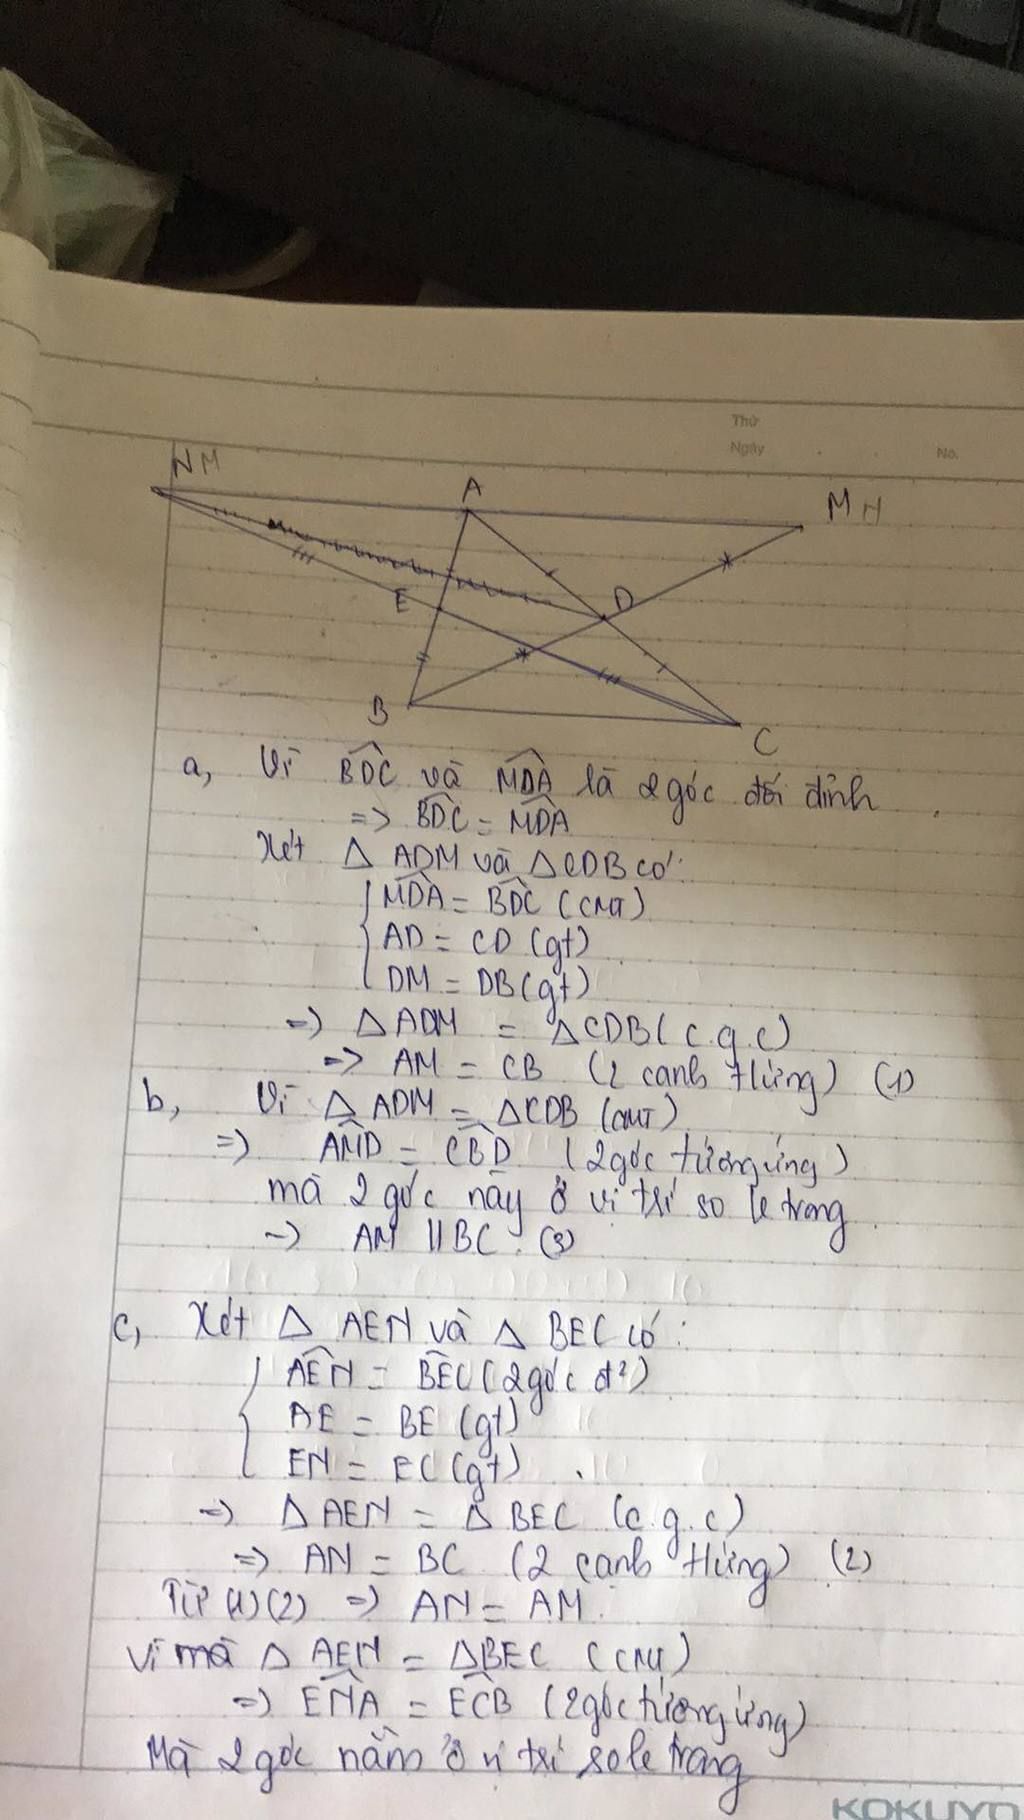 Thứ
Ngày
No.
N M
A
M N
E
D
B
C
a, Vì BDC và MDA là 2 góc đối đỉnh
=> BDC = MDA
Xét Δ ADM và ΔCDB có:
MDA = BDC (CMT)
AD = CD (gt)
DM = DB (gt)
=> Δ ADM = ΔCDB (c.g.c)
=> AM = CB (2 cạnh tứng) (1)
b, Vì Δ ADM = ΔCDB (CMT)
=> AMD = CBD (2 góc tương ứng)
mà 2 góc này ở vị trí so le trong
=> AM // BC. (3)
c, Xét Δ AEN và Δ BEC có:
AEN = BEC (2 góc đ²)
AE = BE (gt)
EN = EC (gt)
=> Δ AEN = Δ BEC (c.g.c)
=> AN = BC (2 cạnh tứng) (2)
Từ (1)(2) => AN = AM
Vì mà Δ AEN = ΔBEC (CMT)
=> ENA = ECB (2 góc tương ứng)
Mà 2 góc nằm ở vị trí so le trong
KOKUYO